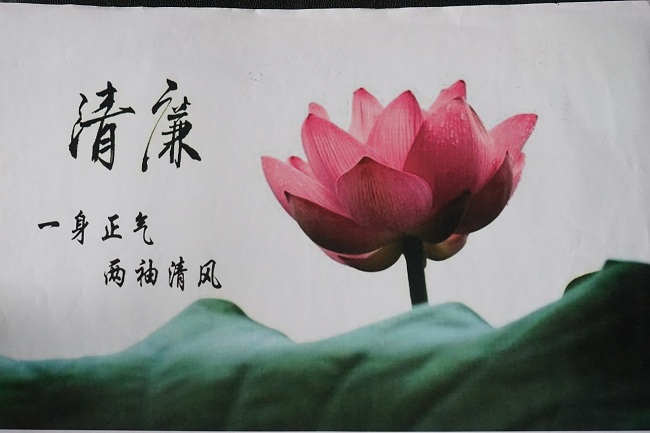 清廉
一身正气
两袖清风